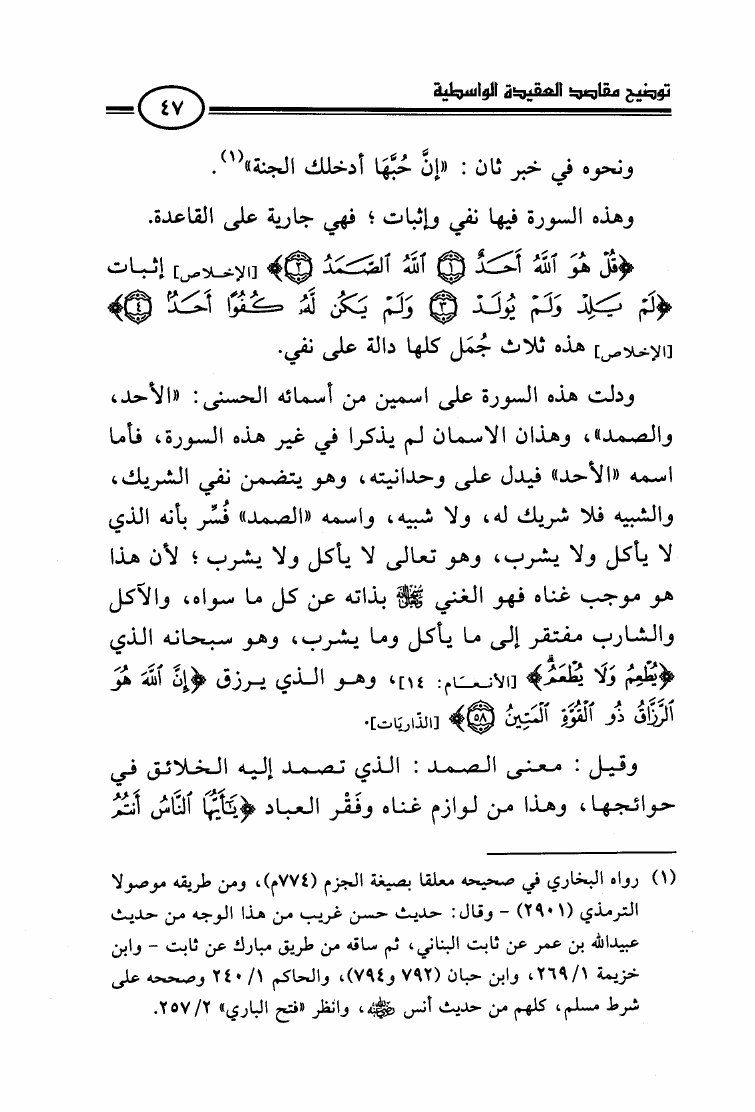 توضيح مقاصد العقيدة الواسطية
٤٧
ونحوه في خبر ثان : «إنَّ حُبَّهَا أدخلك الجنة»(١).
وهذه السورة فيها نفي وإثبات ؛ فهي جارية على القاعدة.
﴿قُلْ هُوَ ٱللَّهُ أَحَدٌ ۝١ ٱللَّهُ ٱلصَّمَدُ ۝٢﴾ [الإخلاص] إثبات
﴿لَمْ يَلِدْ وَلَمْ يُولَدْ ۝٣ وَلَمْ يَكُن لَّهُۥ كُفُوًا أَحَدٌۢ ۝٤﴾
[الإخلاص] هذه ثلاث جُمَل كلها دالة على نفي.
ودلت هذه السورة على اسمين من أسمائه الحسنى: «الأحد،
والصمد»، وهذان الاسمان لم يذكرا في غير هذه السورة، فأما
اسمه «الأحد» فيدل على وحدانيته، وهو يتضمن نفي الشريك،
والشبيه فلا شريك له، ولا شبيه، واسمه «الصمد» فُسِّر بأنه الذي
لا يأكل ولا يشرب، وهو تعالى لا يأكل ولا يشرب ؛ لأن هذا
هو موجب غناه فهو الغني ﷻ بذاته عن كل ما سواه، والآكل
والشارب مفتقر إلى ما يأكل وما يشرب، وهو سبحانه الذي
﴿يُطْعِمُ وَلَا يُطْعَمُ﴾ [الأنعـام: ١٤]، وهـو الـذي يـرزق ﴿إِنَّ ٱللَّهَ هُوَ
ٱلرَّزَّاقُ ذُو ٱلْقُوَّةِ ٱلْمَتِينُ ۝٥٨﴾ [الذّاريَات].
وقيل : معنى الصمد : الذي تصمد إليه الخلائق في
حوائجها، وهذا من لوازم غناه وفَقْر العباد ﴿يَٰٓأَيُّهَا ٱلنَّاسُ أَنتُمُ
(١) رواه البخاري في صحيحه معلقا بصيغة الجزم (٧٧٤م)، ومن طريقه موصولا
الترمذي (٢٩٠١) - وقال: حديث حسن غريب من هذا الوجه من حديث
عبيدالله بن عمر عن ثابت البناني، ثم ساقه من طريق مبارك عن ثابت - وابن
خزيمة ٢٦٩/١، وابن حبان (٧٩٢ و٧٩٤)، والحاكم ٢٤٠/١ وصححه على
شرط مسلم، كلهم من حديث أنس رضي الله عنه، وانظر «فتح الباري» ٢٥٧/٢.